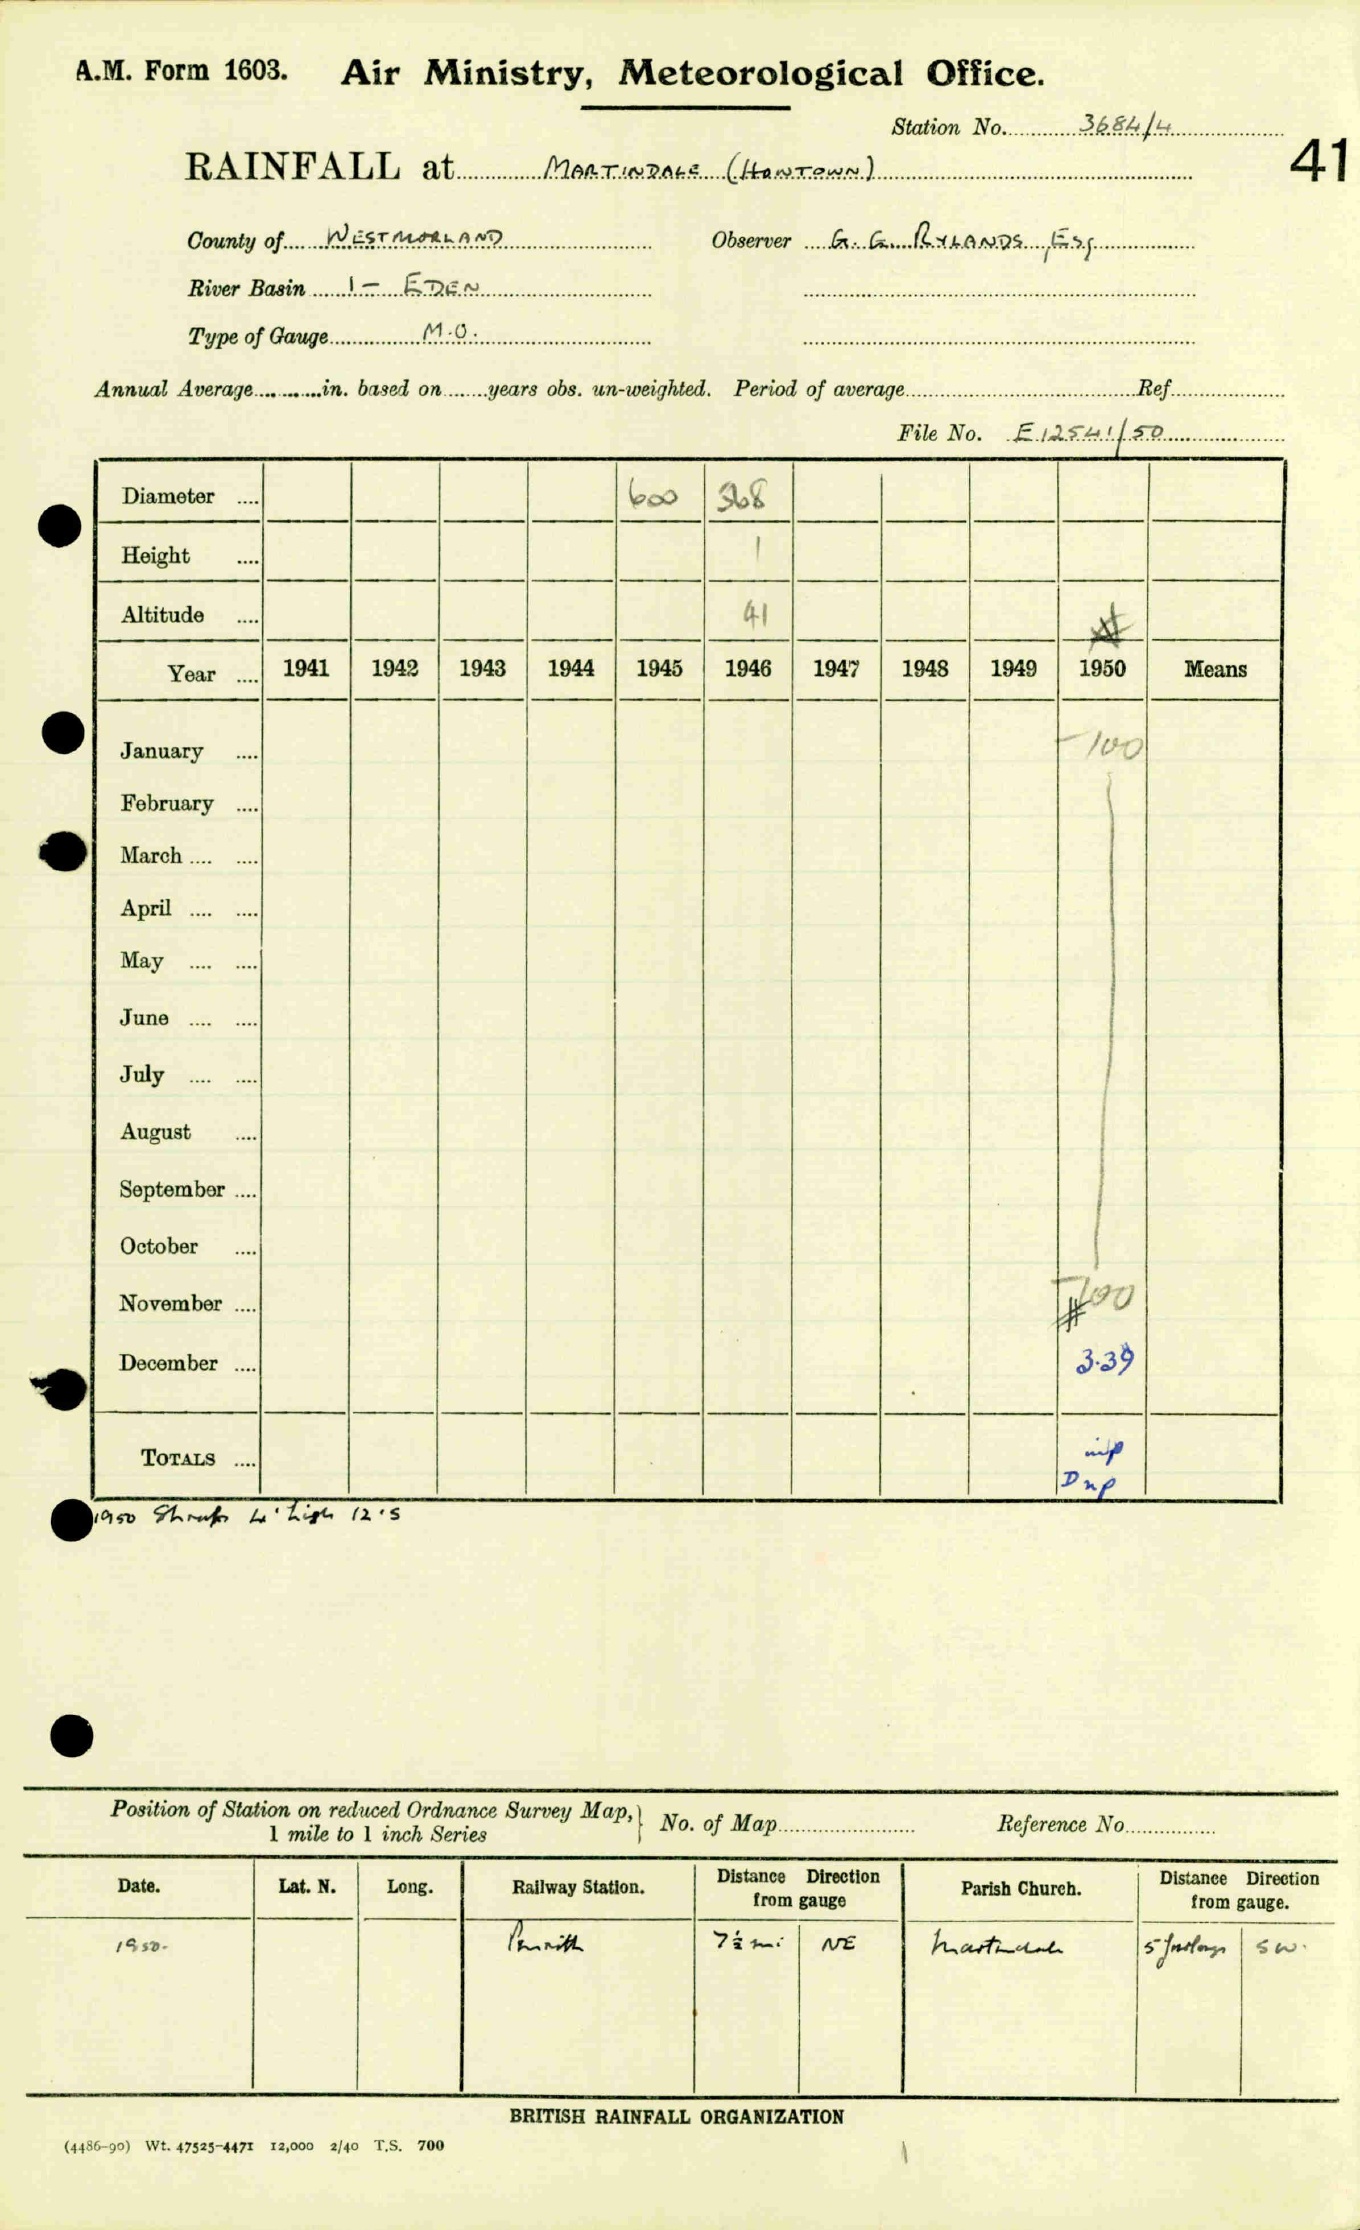 A.M. Form 1603. Air Ministry, Meteorological Office.
Station No. 3684/4
41
RAINFALL at MARTINDALE (HOWTOWN)
County of WESTMORLAND Observer G. G. RYLANDS, Esq
River Basin 1 - EDEN
Type of Gauge M.O.
Annual Average in. based on years obs. un-weighted. Period of average Ref
File No. E12541/50
Diameter 600 368
Height 1
Altitude 41
Year 1941 1942 1943 1944 1945 1946 1947 1948 1949 1950 Means
January -100
February
March
April
May
June
July
August
September
October
November -100
December 3.39
TOTALS inp
Dnp
1950 Shrubs 4' high 12'S
Position of Station on reduced Ordnance Survey Map, No. of Map Reference No.
1 mile to 1 inch Series
Date. Lat. N. Long. Railway Station. Distance Direction from gauge Parish Church. Distance Direction from gauge.
1950. Penrith 7½ mi. NE Martindale 5 furlongs SW.
BRITISH RAINFALL ORGANIZATION
(4486-90) Wt. 47525-4471 12,000 2/40 T.S. 700